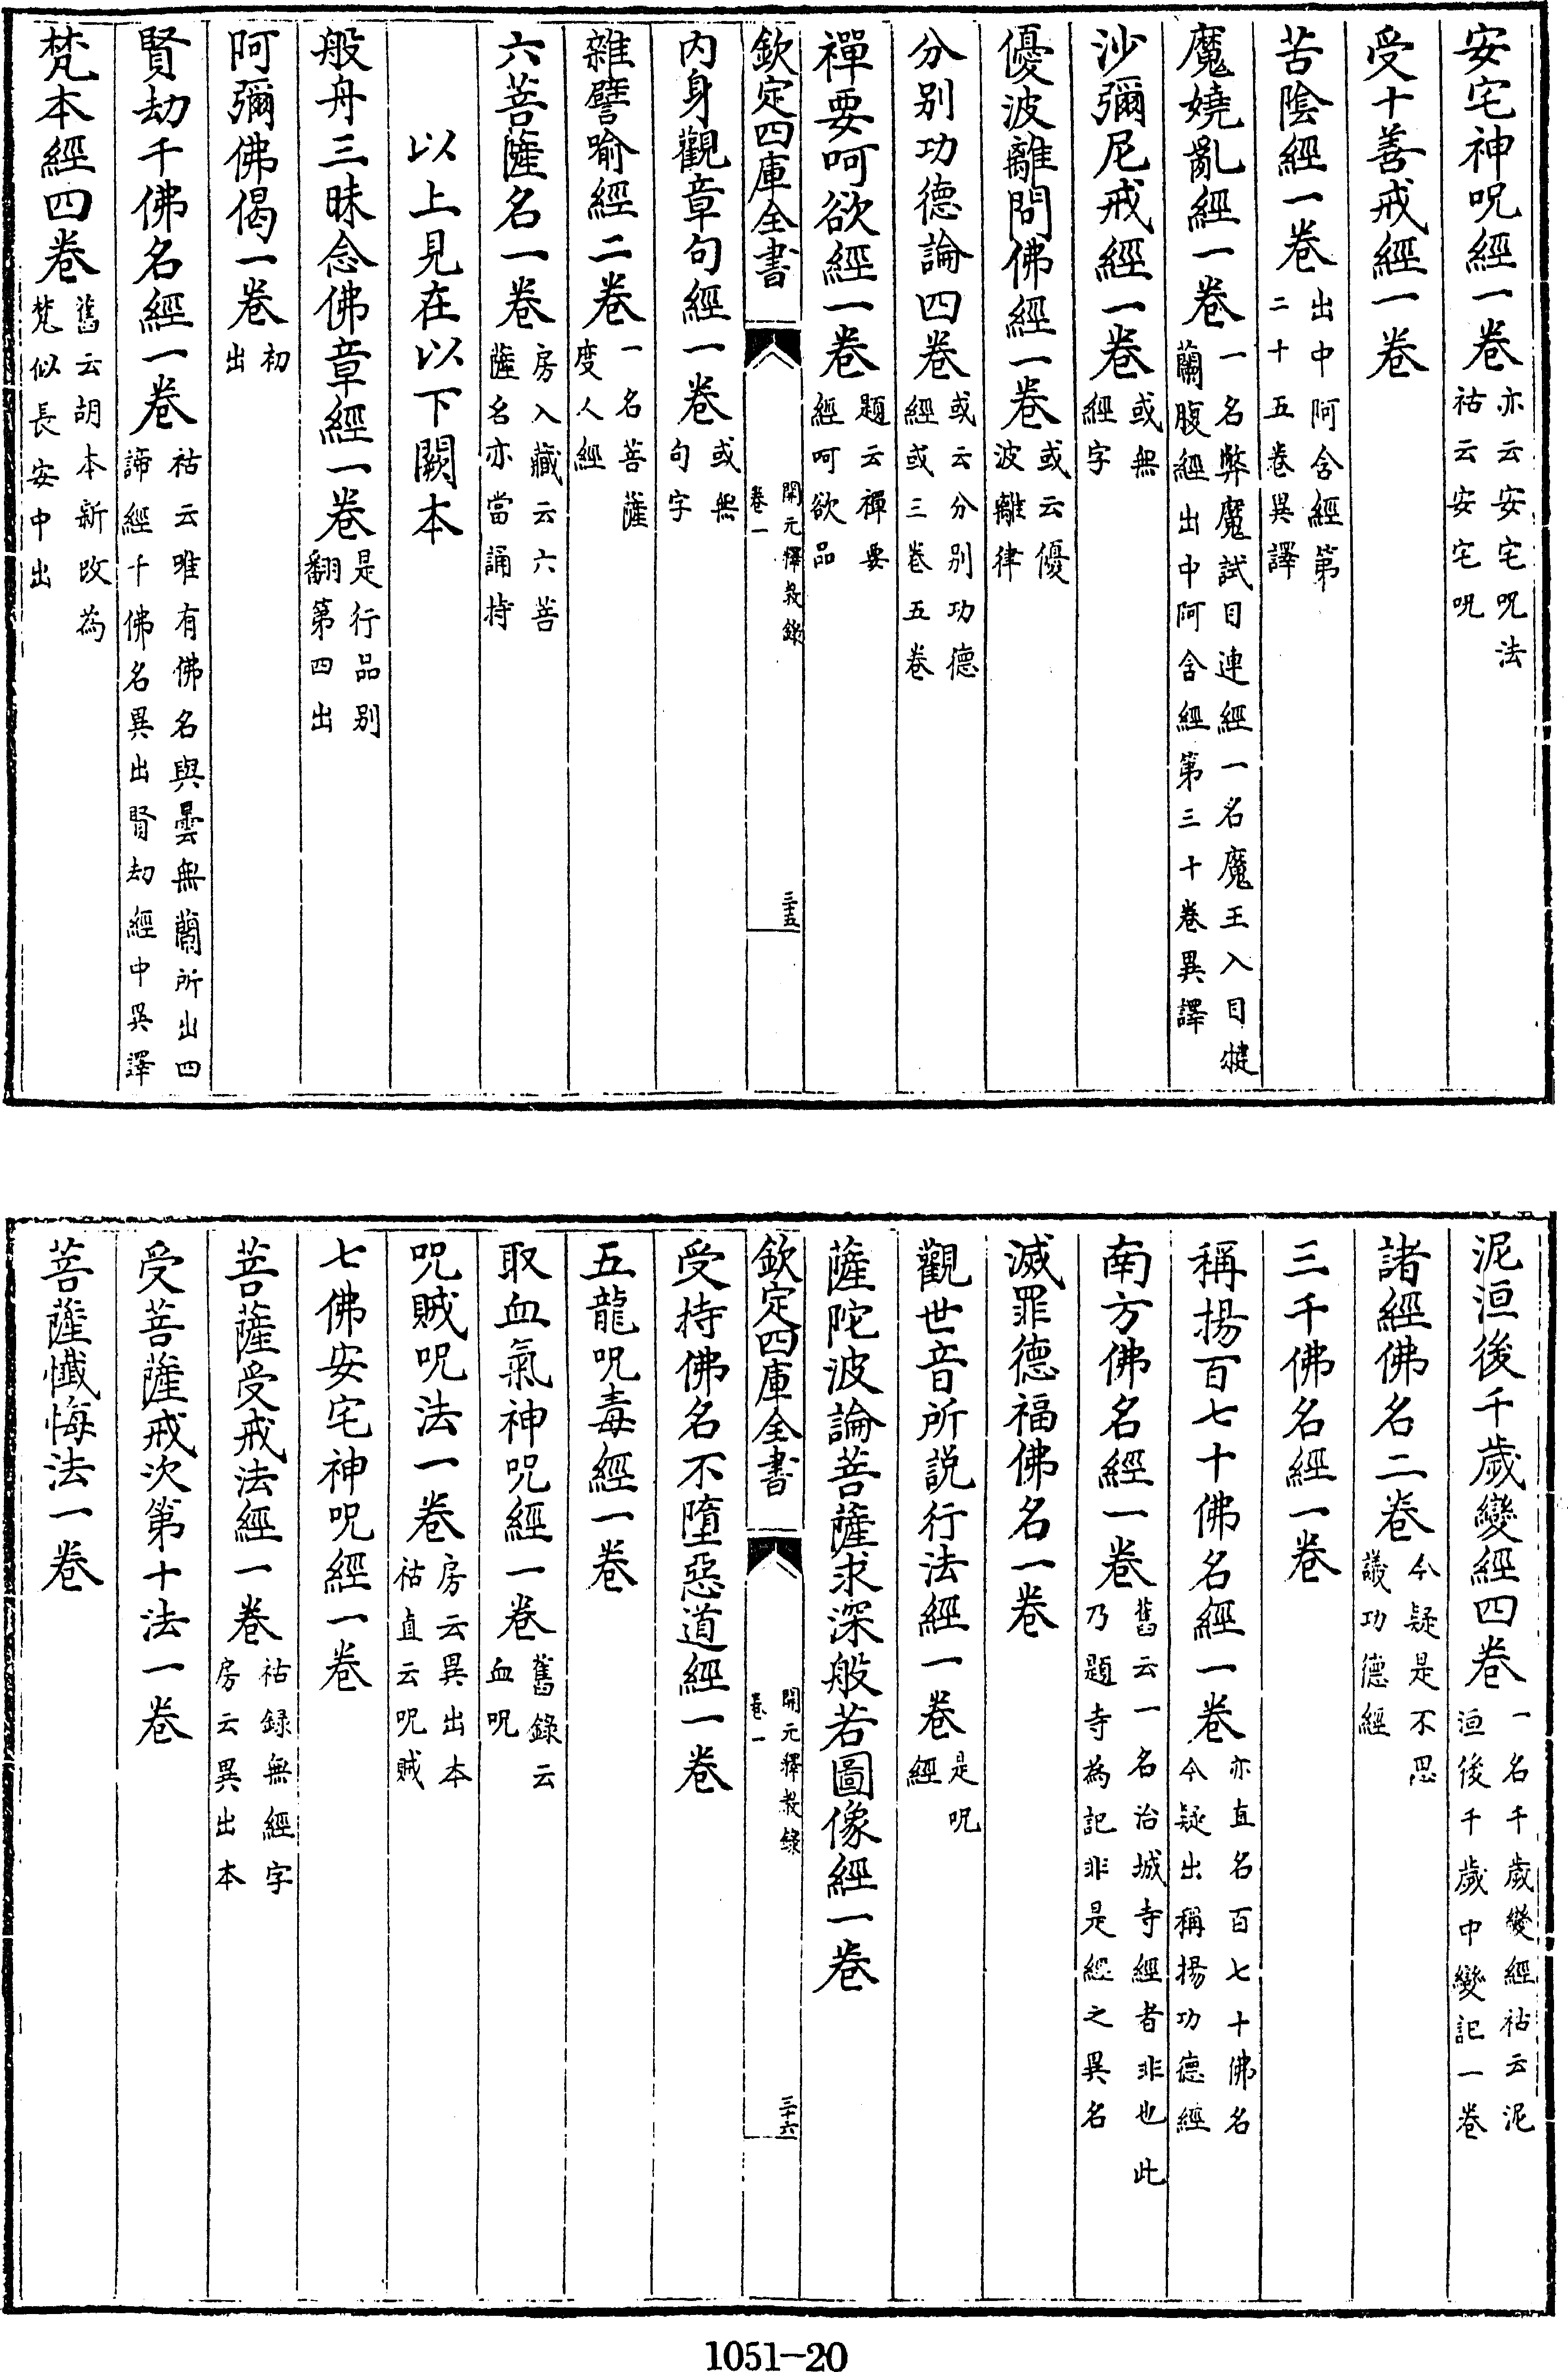 安宅神呪經一卷亦云安宅呪法祐云安宅呪
受十善戒經一卷
苦陰經一卷出中阿含經第二十五卷異譯
魔嬈亂經一卷一名弊魔試目連經一名魔王入目犍蘭腹經出中阿含經第三十卷異譯
沙彌尼戒經一卷或無經字
優波離問佛經一卷或云優波離律
分别功德論四卷或云分别功德經或三卷五卷
禪要呵欲經一卷題云禪要經呵欲品
欽定四庫全書 開元釋敎錄卷一 三十五
内身觀章句經一卷或無句字
雜譬喻經二卷一名菩薩度人經
六菩薩名一卷房入藏云六菩薩名亦當誦持
以上見在以下闕本
般舟三昧念佛章經一卷是行品别翻第四出
阿彌佛偈一卷初出
賢劫千佛名經一卷祐云唯有佛名與曇無蘭所出四諦經千佛名異出賢劫經中異譯
梵本經四卷舊云胡本新改為梵似長安中出
泥洹後千歲變經四卷一名千歲變經祐云泥洹後千歲中變記一卷
諸經佛名二卷今疑是不思議功德經
三千佛名經一卷
稱揚百七十佛名經一卷亦直名百七十佛名今疑出稱揚功德經
南方佛名經一卷舊云一名治城寺經者非也此乃題寺為記非是經之異名
滅罪德福佛名一卷
觀世音所說行法經一卷是呪經
薩陀波論菩薩求深般若圖像經一卷
欽定四庫全書 開元釋敎錄卷一 三十六
受持佛名不墮惡道經一卷
五龍呪毒經一卷
取血氣神呪經一卷舊錄云血呪
呪賊呪法一卷房云異出本祐直云呪賊
七佛安宅神呪經一卷
菩薩受戒法經一卷祐録無經字房云異出本
受菩薩戒次第十法一卷
菩薩懺悔法一卷
1051-20